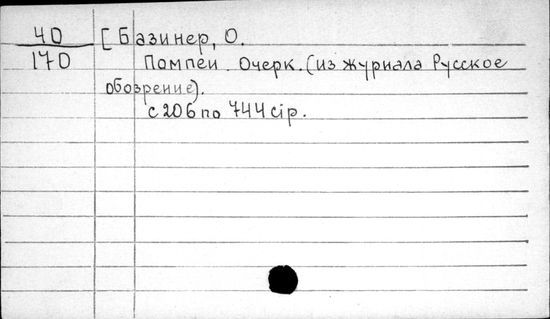 40 [ Базинер, О.
170 Помпеи. Очерк. (из журнала Русское
обозрение).
с 206 по 744 стр.